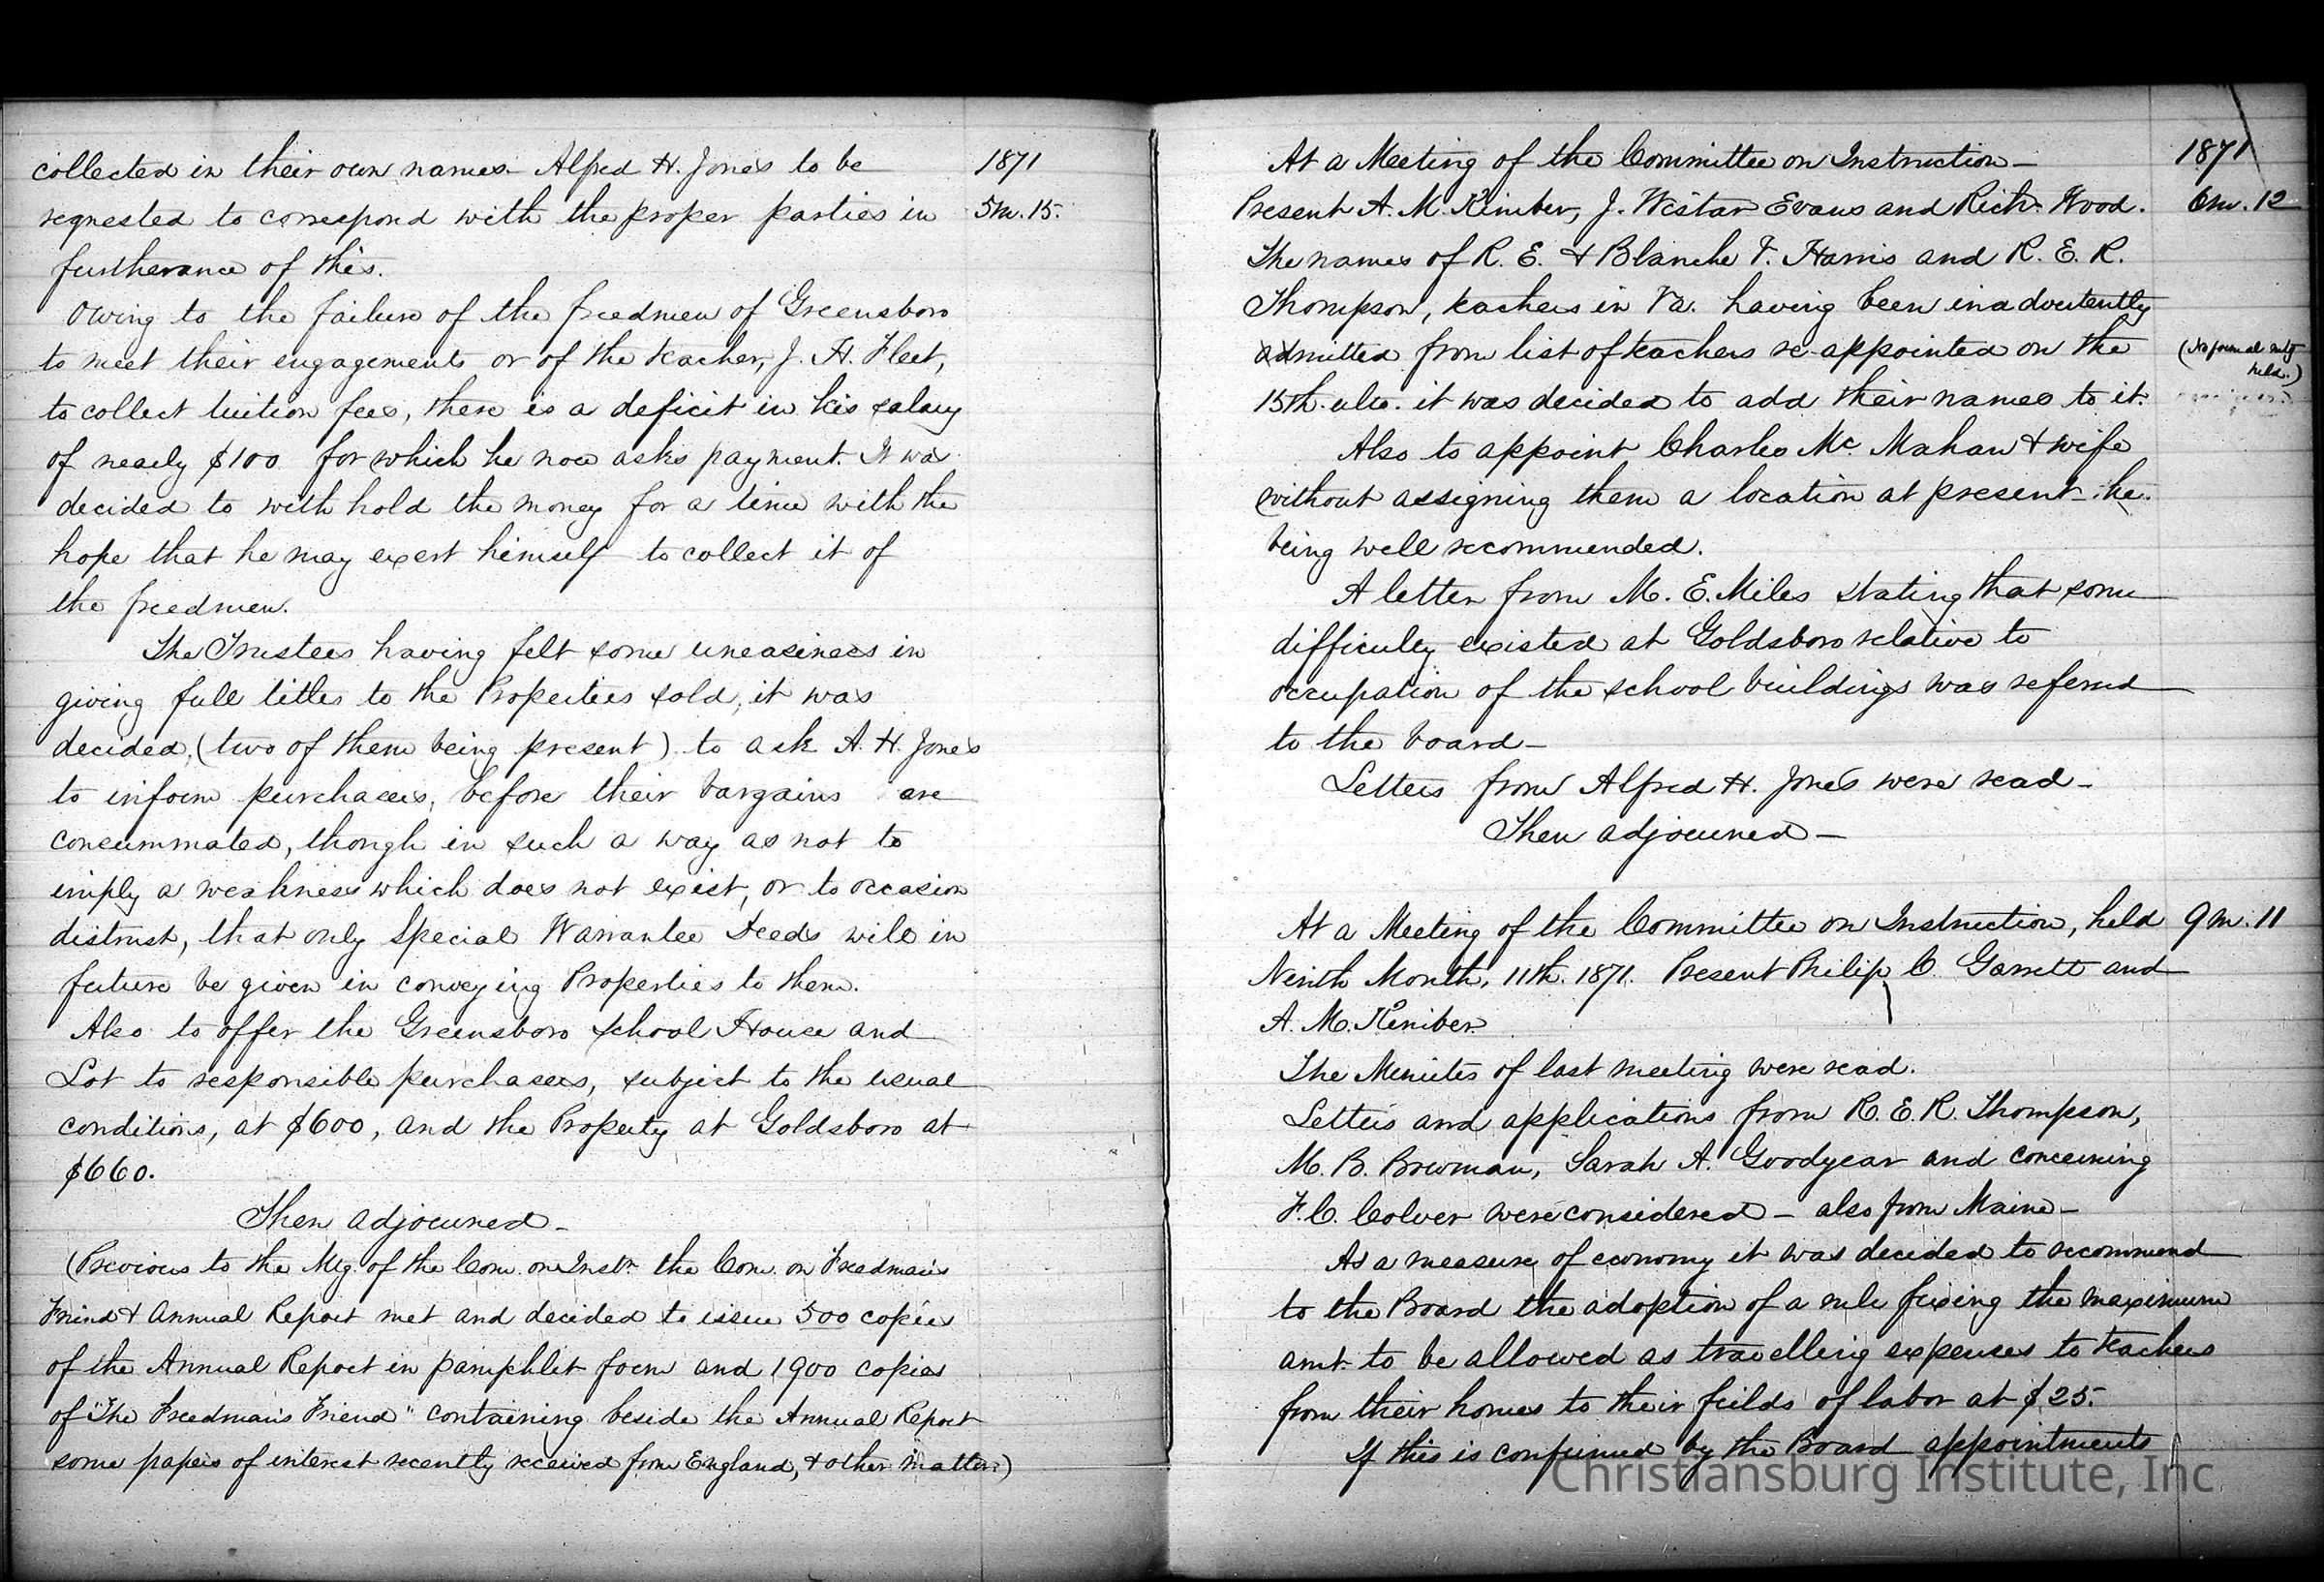 collected in their own names. Alfred H. Jones to be
1871
requested to correspond with the proper parties in
5m. 15.
furtherance of this.
Owing to the failure of the freedmen of Greensboro
to meet their engagements or of the teacher, J. H. Fleet,
to collect tuition fees, there is a deficit in his salary
of nearly $100 for which he now asks payment. It was
decided to with hold the money for a time with the
hope that he may exert himself to collect it of
the freedmen.
The Trustees having felt some uneasiness in
giving full titles to the Properties sold, it was
decided, (two of them being present) to ask A. H. Jones
to inform purchasers, before their bargains are
consummated, though in such a way as not to
imply a weakness which does not exist, or to occasion
distrust, that only Special Warrantee Deeds will in
future be given in conveying Properties to them.
Also to offer the Greensboro school House and
Lot to responsible purchasers, subject to the usual
conditions, at $600, and the Property at Goldsboro at
$660.
Then adjourned—
(Previous to the Mtg. of the Com. on Instn. the Com. on Freedman's
Friend & Annual Report met and decided to issue 500 copies
of the Annual Report in pamphlet form and 1900 copies
of "The Freedman's Friend" containing beside the Annual Report
some papers of interest recently received from England, & other matter.)
At a Meeting of the Committee on Instruction—
1871
Present A. M. Kimber, J. Wistar Evans and Richd. Wood.
6m. 12
The names of R. E. & Blanche V. Harris and R. E. R.
Thompson, teachers in Va. having been inadvertently
admitted from list of teachers re-appointed on the
(No formal mtg
held.)
15th. ulto. it was decided to add their names to it.
Also to appoint Charles Mc Mahan & wife
without assigning them a location at present, he
being well recommended.
A letter from M. E. Miles stating that some
difficulty existed at Goldsboro relative to
occupation of the school buildings was referred
to the board—
Letters from Alfred H. Jones were read—
Then adjourned—
At a Meeting of the Committee on Instruction, held
9m. 11
Ninth Month, 11th. 1871. Present Philip C. Garrett and
A. M. Kimber.
The Minutes of last meeting were read.
Letters and applications from R. E. R. Thompson,
M. B. Bowman, Sarah A. Goodyear and concerning
F. C. Colver were considered— also from Maine—
As a measure of economy it was decided to recommend
to the Board the adoption of a rule fixing the maximum
amt. to be allowed as travelling expenses to teachers
from their homes to their feilds of labor at $25.
If this is confirmed by the Board appointments
Christiansburg Institute, Inc